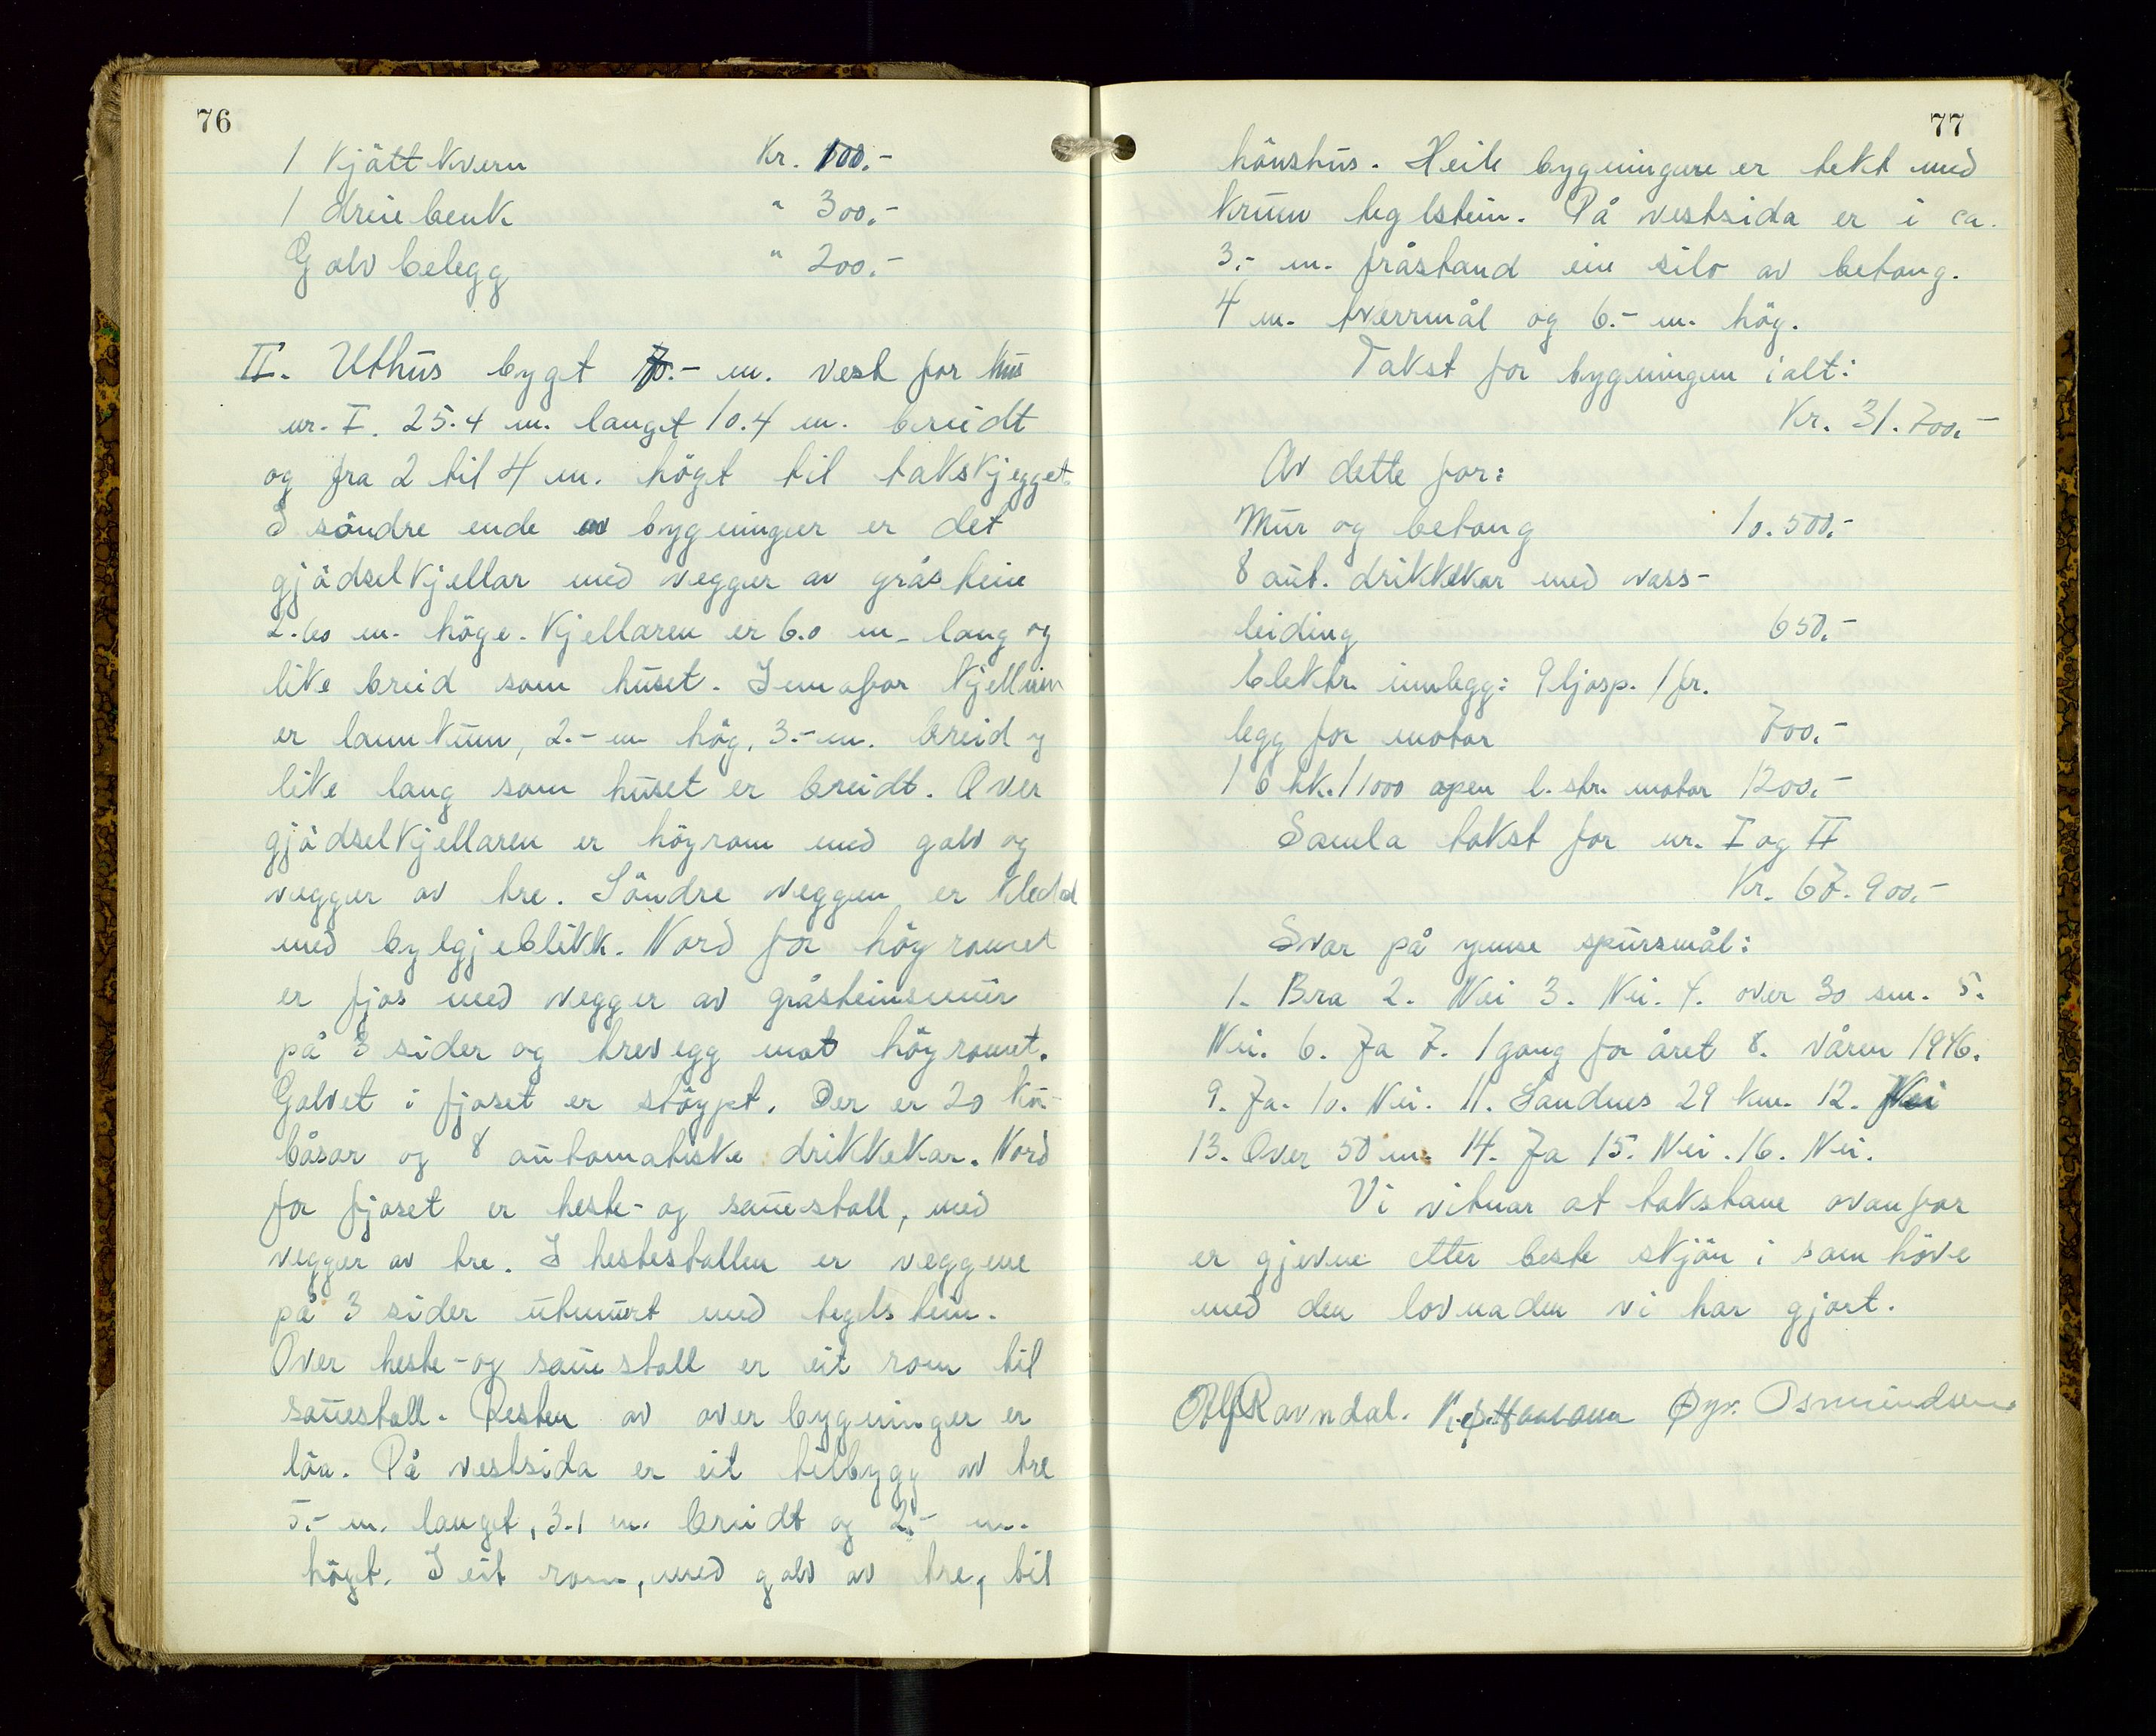 76
1 kjöttkvern Kr. 100.-
1 dreiebenk " 300.-
Golvbelegg " 200.-
II. Uthus bygt 70.- m. vest for hus
nr. I. 25.4 m. langt 10.4 m. breidt
og fra 2 til 4 m. högt til takskjegget.
I söndre ende av bygningen er det
gjödselkjellar med vegger av gråstein
2.60 m. höge. Kjellaren er 6.0 m. lang og
like breid som huset. Innafor kjellaren
er lannkum, 2.- m hög, 3.- m. breid og
like lang som huset er breidt. Over
gjödselkjellaren er höyrom med golv og
vegger av tre. Söndre veggen er kledd
med bylgjeblikk. Nord for höyromet
er fjos med vegger av gråsteinsmur
på 3 sider og trevegg mot höyromet.
Golvet i fjoset er stöypt. Der er 20 ku-
båsar og 8 automatiske drikkekar. Nord
for fjoset er heste- og sauestall, med
vegger av tre. I hestestallen er veggene
på 3 sider utmurt med teglstein.
Over heste- og sauestall er eit rom til
sauestall. Resten av overbygningen er
löa. På vestsida er eit tilbygg av tre
5.- m. langt, 3.1 m. breidt og 2.- m.
högt. I eit rom, med golv av tre, til
77
hönshus. Heile bygningane er tekt med
krum teglstein. På vestsida er i ca.
3.- m. fråstand ein silo av betong.
4 m. tverrmål og 6.- m. hög.
Takst for bygningen ialt:
Kr. 31.700.-
Av dette for:
Mur og betong 10.500.-
8 aut. drikkekar med vass-
leiding 650.-
Elektr. innlegg: 9 ljosp. 1 fr.
legg for motor 700.-
1 6 hk. 1/1000 open l. str. motor 1200.-
Samla takst for nr. I og II
Kr. 67.900.-
Svar på ymse spursmål:
1. Bra 2. Nei 3. Nei. 4. over 30 sm. 5.
Nei. 6. Ja 7. 1 gang for året 8. våren 1946.
9. Ja. 10. Nei. 11. Sandnes 29 km. 12. Nei
13. Over 50 m. 14. Ja 15. Nei. 16. Nei.
Vi vitnar at takstane ovanfor
er gjevne etter beste skjön i samhöve
med den lovnaden vi har gjort.
Ravndal. Øyv. Osmundsen